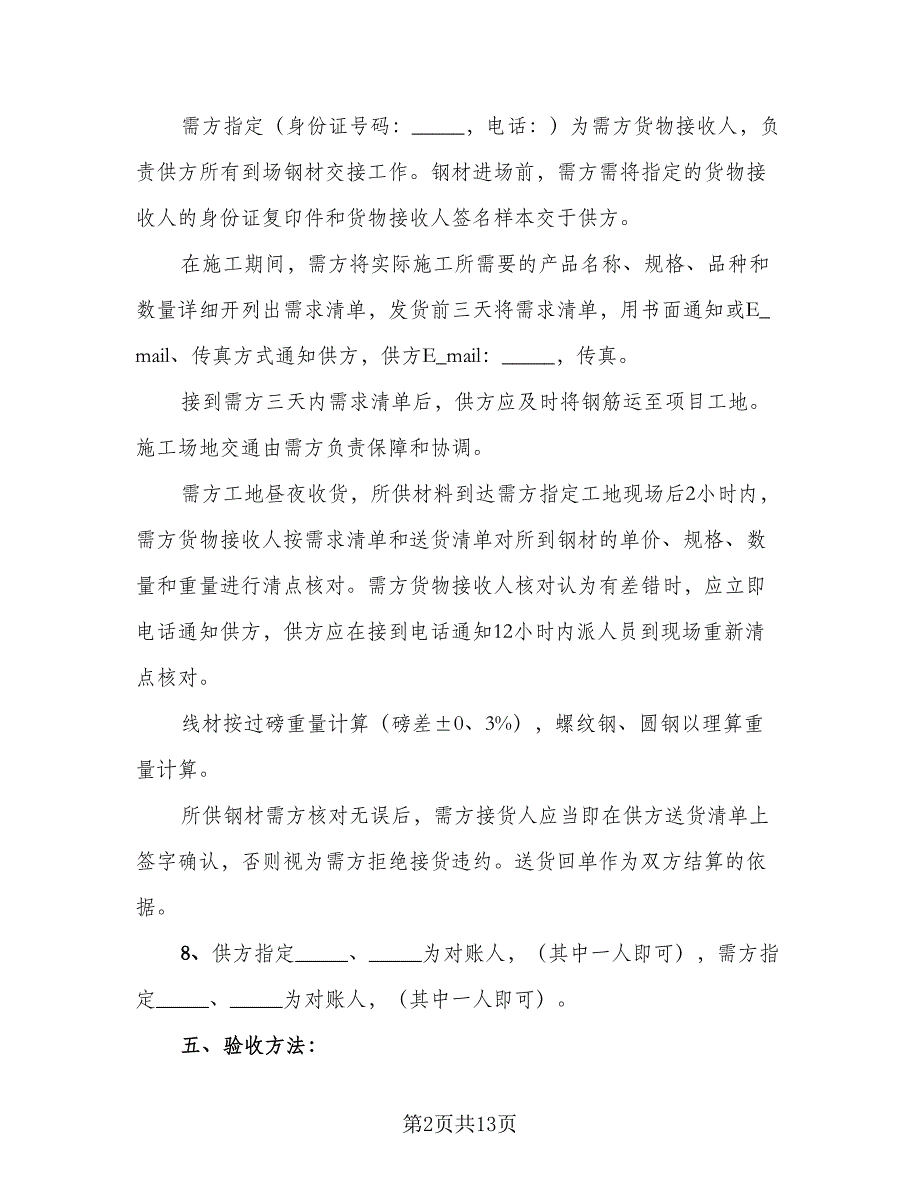 需方指定（身份证号码：_____，电话：）为需方货物接收人，负
责供方所有到场钢材交接工作。钢材进场前，需方需将指定的货物接
收人的身份证复印件和货物接收人签名样本交于供方。
在施工期间，需方将实际施工所需要的产品名称、规格、品种和
数量详细开列出需求清单，发货前三天将需求清单，用书面通知或E_
mail、传真方式通知供方，供方E_mail：_____，传真。
接到需方三天内需求清单后，供方应及时将钢筋运至项目工地。
施工场地交通由需方负责保障和协调。
需方工地昼夜收货，所供材料到达需方指定工地现场后2小时内，
需方货物接收人按需求清单和送货清单对所到钢材的单价、规格、数
量和重量进行清点核对。需方货物接收人核对认为有差错时，应立即
电话通知供方，供方应在接到电话通知12小时内派人员到现场重新清
点核对。
线材按过磅重量计算（磅差±0、3%），螺纹钢、圆钢以理算重
量计算。
所供钢材需方核对无误后，需方接货人应当即在供方送货清单上
签字确认，否则视为需方拒绝接货违约。送货回单作为双方结算的依
据。
8、供方指定_____、_____为对账人，（其中一人即可），需方指
定_____、_____为对账人，（其中一人即可）。
五、验收方法：
第2页共13页